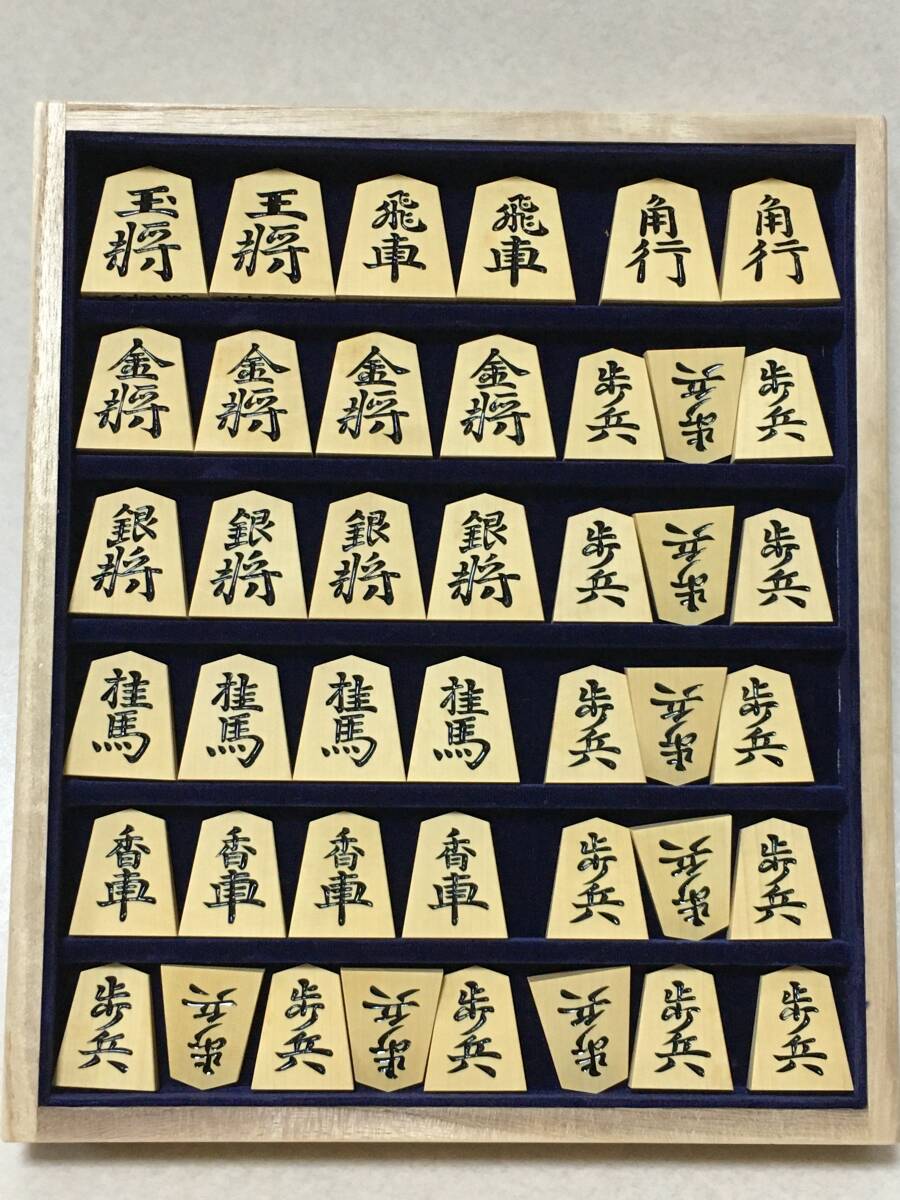 玉将 王将 飛車 飛車 角行 角行
金将 金将 金将 金将 歩兵 歩兵 歩兵
銀将 銀将 銀将 銀将 歩兵 歩兵 歩兵
桂馬 桂馬 桂馬 桂馬 歩兵 歩兵 歩兵
香車 香車 香車 香車 歩兵 歩兵 歩兵
歩兵 歩兵 歩兵 歩兵 歩兵 歩兵 歩兵 歩兵